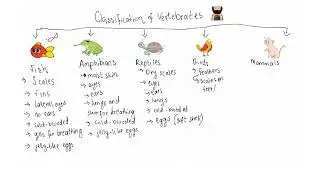 Classification of Vertebrates
Fish
→ Scales
→ fins
→ lateral eyes
→ no ears
→ cold-blooded
→ gills for breathing
→ jelly-like eggs
Amphibians
→ moist skin
→ eyes
→ ears
→ lungs and
skin for breathing
→ cold-blooded
→ jelly-like eggs
Reptiles
→ Dry scales
→ eyes
→ ears
→ lungs
→ cold-blooded
→ eggs (soft shell)
Birds
→ feathers
scales on
feet
Mammals